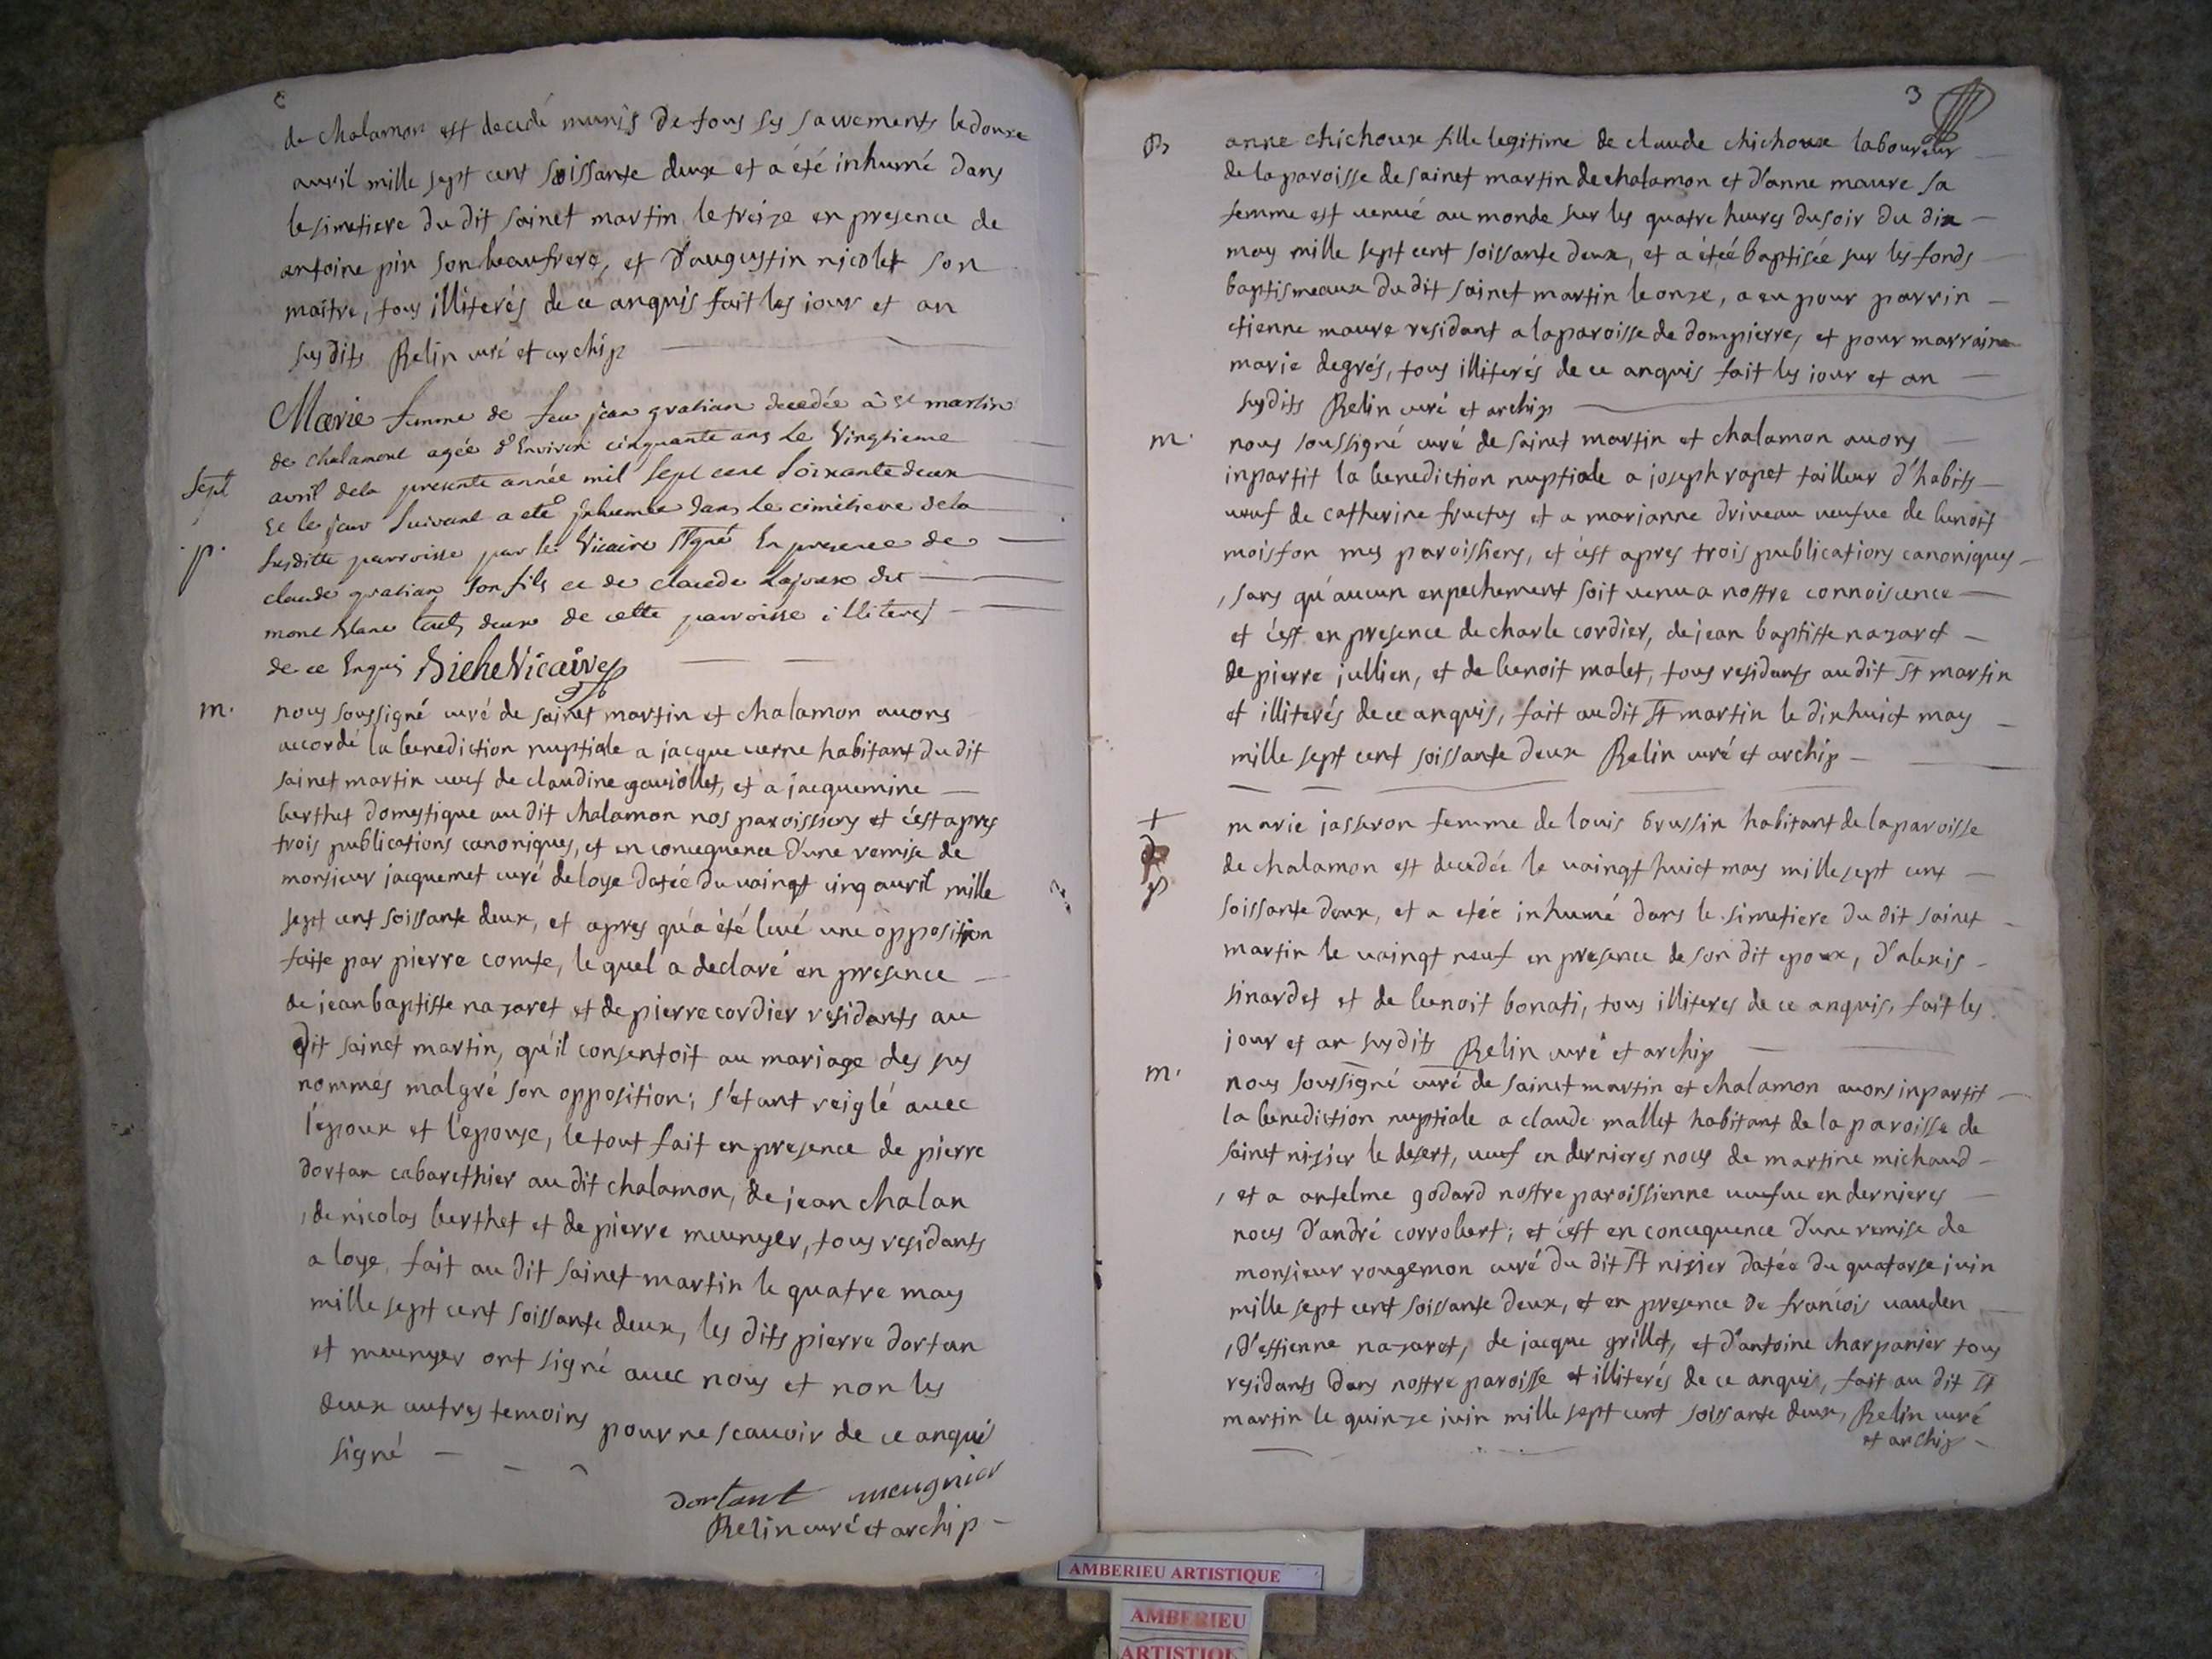 de chalamon est decedé munis de tous ses sacrements le douze
auril mille sept cent soissante deux et a été inhumé dans
le simetiere du dit sainct martin le treize en presence de
antoine pin son beaufrere, et d'augustin nicolet son
maitre, tous illiterés de ce anquis fait les iour et an
susdits Relin curé et archip
Marie femme de feu jean gratian decedée à St martin
de chalamont agée d'Environ cinquante ans Le Vingtieme
sept avril dela presente année mil sept cent soixante deux
et le jour suivant a eté Inhumée dans Le cimetiere dela
p. susditte parroisse par le Vicaire ssgné En presence de
claude gratian son fils et de claude Lajoux dit
mont blanc touts deux de cette parroisse illiteres
de ce Enquis Vicaire
m. nous soussigné curé de sainct martin et chalamon auons
accordé la benediction nuptiale a jacque uerne habitant du dit
sainct martin ueuf de claudine gouiollet, et a jacquemine
berthet domestique au dit chalamon nos paroissiens et c'est apres
trois publications canoniques, et en concequence d'une remise de
monsieur jacquemet curé de loye datée du uaingt cinq auril mille
sept cent soissante deux, et apres qu'a été leué une opposition
faite par pierre comte, le quel a declaré en presence
de jean baptiste nazaret et de pierre cordier residants au
dit sainct martin, qu'il consentoit au mariage des sus
nommés malgré son opposition; s'etant reiglé auec
l'epoux et l'epouse, le tout fait en presence de pierre
dortan cabarethier au dit chalamon, de jean chalan
, de nicolas berthet et de pierre meunyer, tous residants
a loye, fait au dit sainct martin le quatre may
mille sept cent soissante deux, les dits pierre dortan
et meunyer ont signé auec nous et non les
deux autres temoins pour ne scauoir de ce anqui
signé
dortant meugnier
Relin curé et archip
3
B anne chichoux fille legitime de claude chichoux laboureur
de la paroisse de sainct martin de chalamon et d'anne maure sa
femme est uenué au monde sur les quatre heures du soir du dix
may mille sept cent soissante deux, et a étéé baptisée sur les fonds
baptismeaux du dit sainct martin le onze, a eu pour parrin
etienne maure residant a la paroisse de dompierre, et pour marraine
marie degrés, tous illiterés de ce anquis fait les iour et an
susdits Relin curé et archip
m. nous soussigné curé de sainct martin et chalamon auons
inpartit la benediction nuptiale a joseph rapet tailleur d'habits
ueuf de catherine fructus et a marianne driueau ueufue de benoit
moisson mes paroissiens, et c'est apres trois publications canoniques
, sans qu'aucun enpechement soit uenu a nostre connoiscence
et c'est en presence de charle cordier, de jean baptiste nazaret
de pierre jullien, et de benoit malet, tous residants au dit St martin
et illiterés de ce anquis, fait au dit St martin le dixhuict may
mille sept cent soissante deux Relin curé et archip
+ marie jasseron femme de louis brussin habitant de la paroisse
de chalamon est decedée le uaingt huict may mille sept cent
p soissante deux, et a etéé inhumé dans le simetiere du dit sainct
martin le uaingt neuf en presence de son dit epoux, d'alexis
sinardet et de benoit bonati, tous illiteres de ce anquis, fait les
jour et an susdits Relin curé et archip
m. nous soussigné curé de sainct martin et chalamon auons inpartit
la benediction nuptiale a claude mallet habitant de la paroisse de
sainct nizier le desert, ueuf en dernieres noces de martine michaud
, et a antelme godard nostre paroissienne ueufue en dernieres
noces d'andré corrobert; et c'est en concequence d'une remise de
monsieur rougemon curé du dit St nizier datée du quatorze juin
mille sept cent soissante deux, et en presence de francois uauden
, d'estienne nazaret, de jacque grillet, et d'antoine charpanier tous
residants dans nostre paroisse et illiterés de ce anquis, fait au dit St
martin le quinze iuin mille sept cent soissante deux, Relin curé
et archip
AMBERIEU ARTISTIQUE
AMBERIEU
ARTISTIQUE